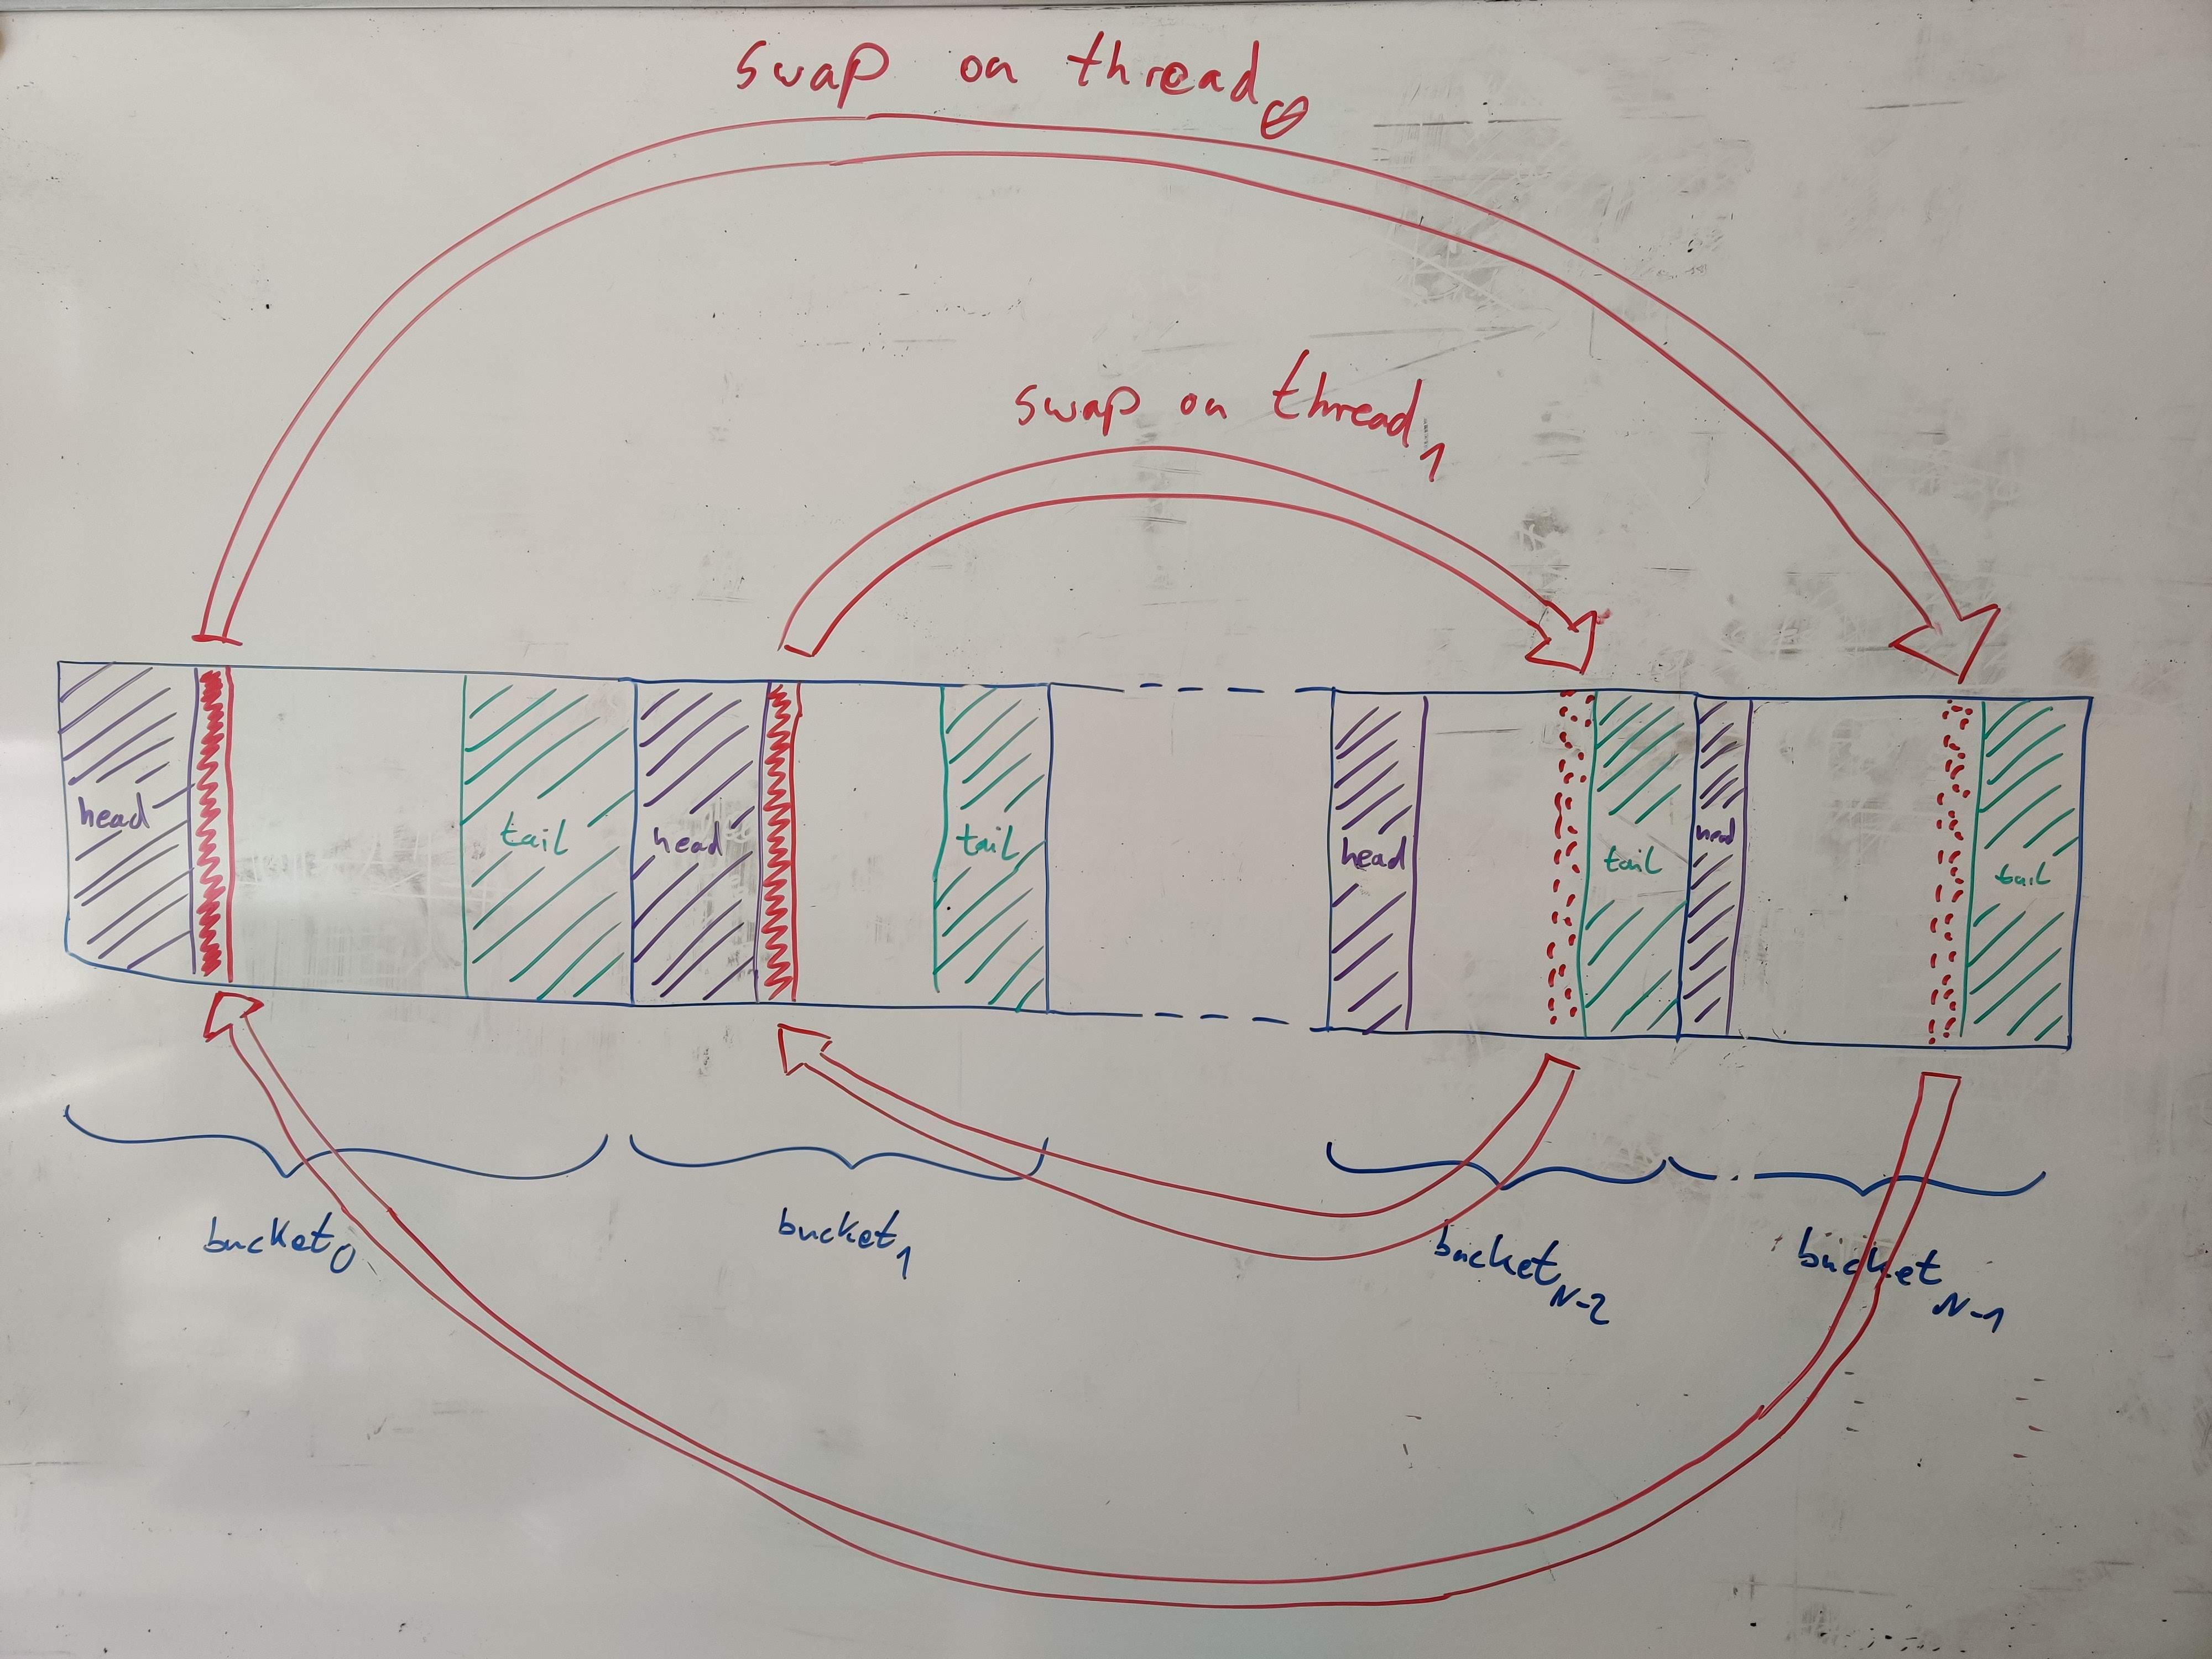 swap on thread₀
swap on thread₁
head
tail
head
tail
head
tail
head
tail
bucket₀
bucket₁
bucket N-2
bucket N-1